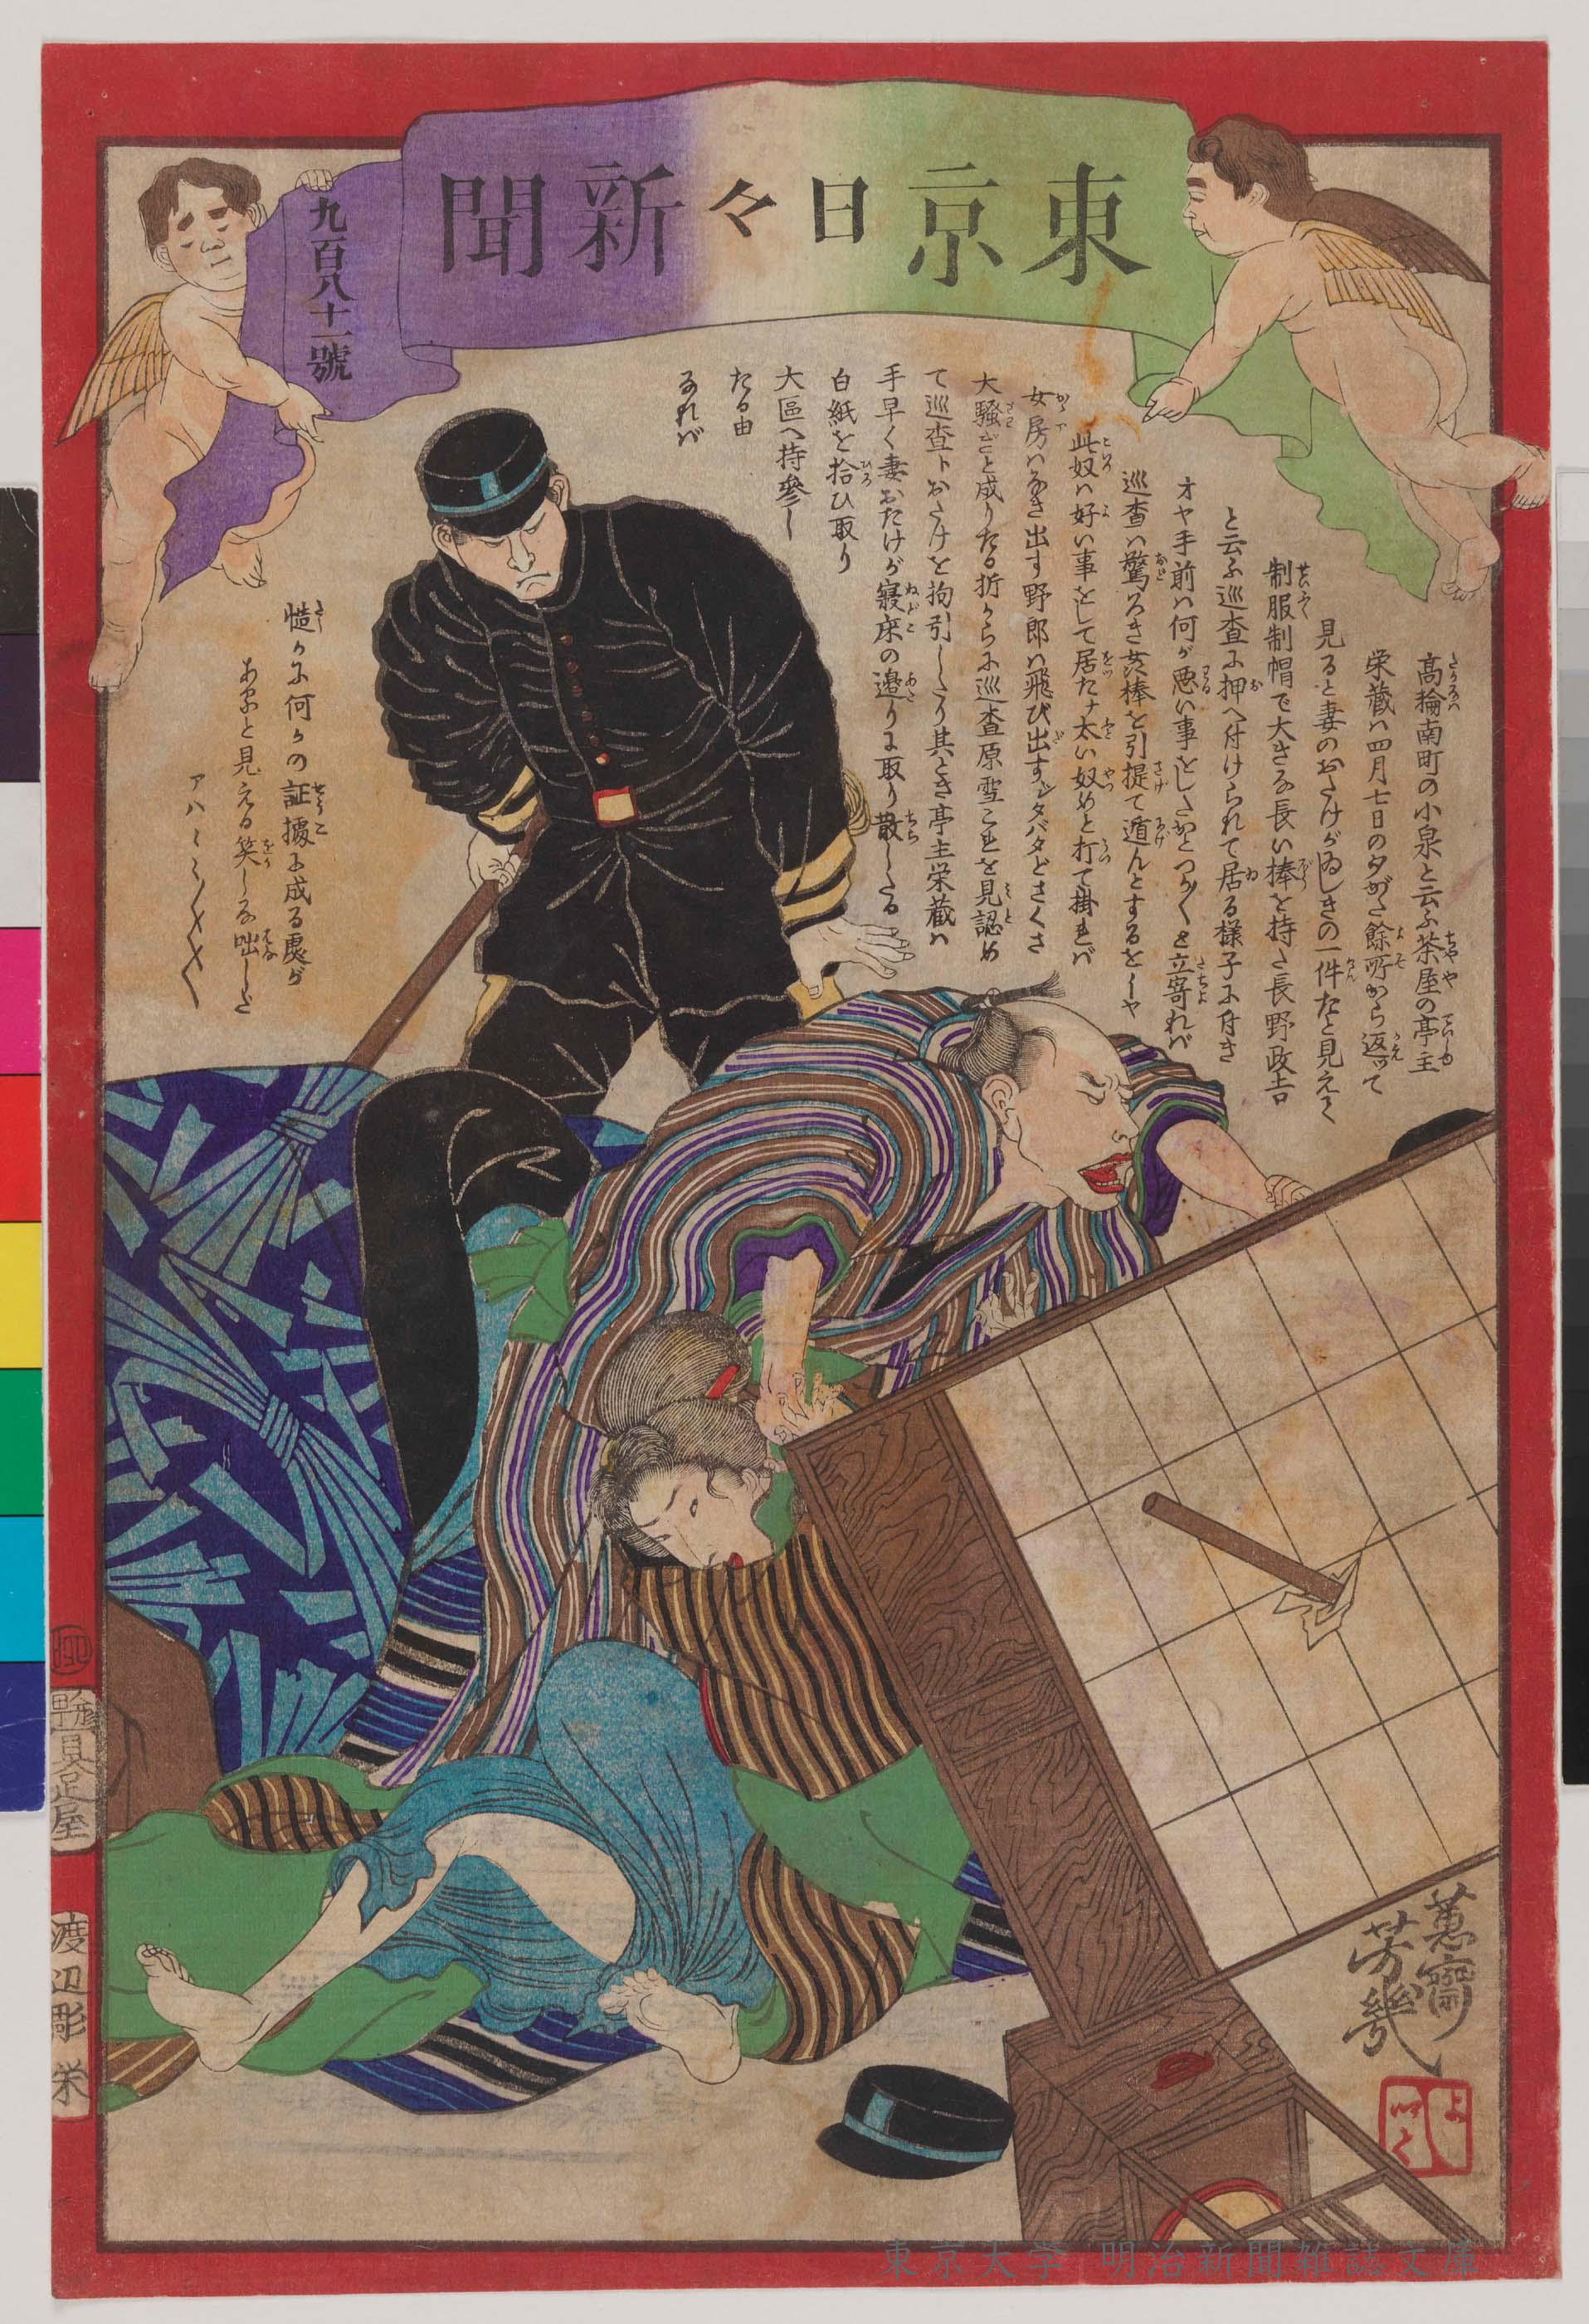 東京日々新聞
九百八十一號
高輪南町の小泉と云ふ茶屋の亭主
栄蔵ハ四月七日の夕がた餘所から返ッて
見ると妻のおたけがゐしきの一件だと見えて
制服制帽で大きな長い棒を持た長野政吉
と云ふ巡査に押へ付けられて居る様子に付き
オヤ手前ハ何が悪い事をしたかとつか〱と立寄れバ
巡査ハ驚ろき其棒を引提て遁んとするをイヤ
此奴ハ好い事をして居たナ太い奴めと打て掛れバ
女房ハなき出す野郎ハ飛び出すジタバタどさくさ
大騒ぎと成りたる折から巡査原雪こ
て巡査トおたけを拘引したり其とき亭主栄蔵ハ
手早く妻おたけが寝床の邉りに取り散したる
白紙を拾ひ取り
大區へ持參し
たる由
なれバ
慥かに何かの証據に成る処が
あると見える笑しな咄しだ
アハ〻〻〱〱〱
蕙齋
芳幾
よし
いく
具足屋
渡辺彫栄
東京大学 明治新聞雑誌文庫